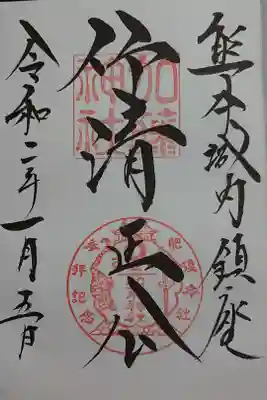 熊本城内鎮座
仰清正公
加藤神社
参拝記念
令和二年一月五日